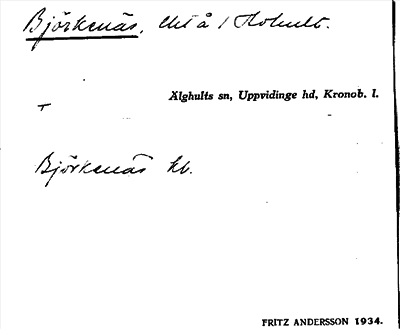 Björkenäs, lht å 1 Hohult.
Älghults sn, Uppvidinge hd, Kronob. l.
T
Björkenäs kb.
FRITZ ANDERSSON 1934.